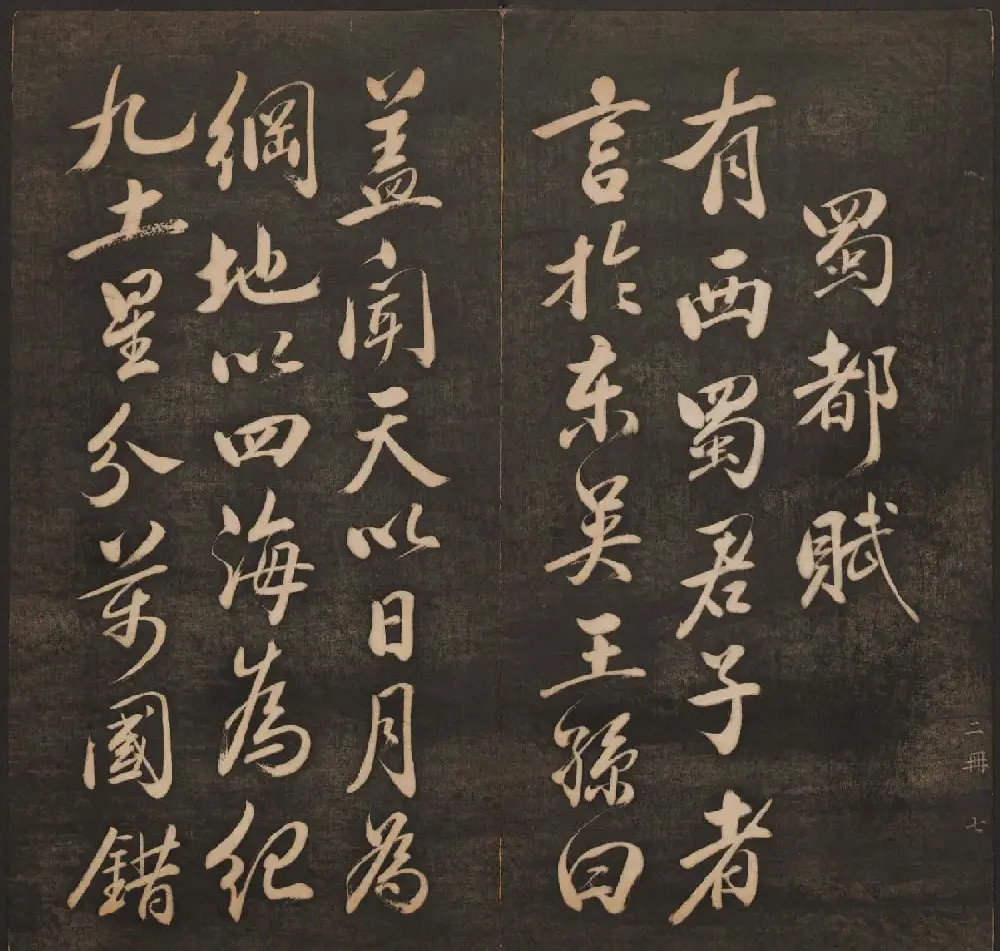 蜀都賦
有西蜀君子者
言於东吴王孫曰
盖闻天以日月為
綱地以四海為紀
九土星分萬國錯
二冊 七